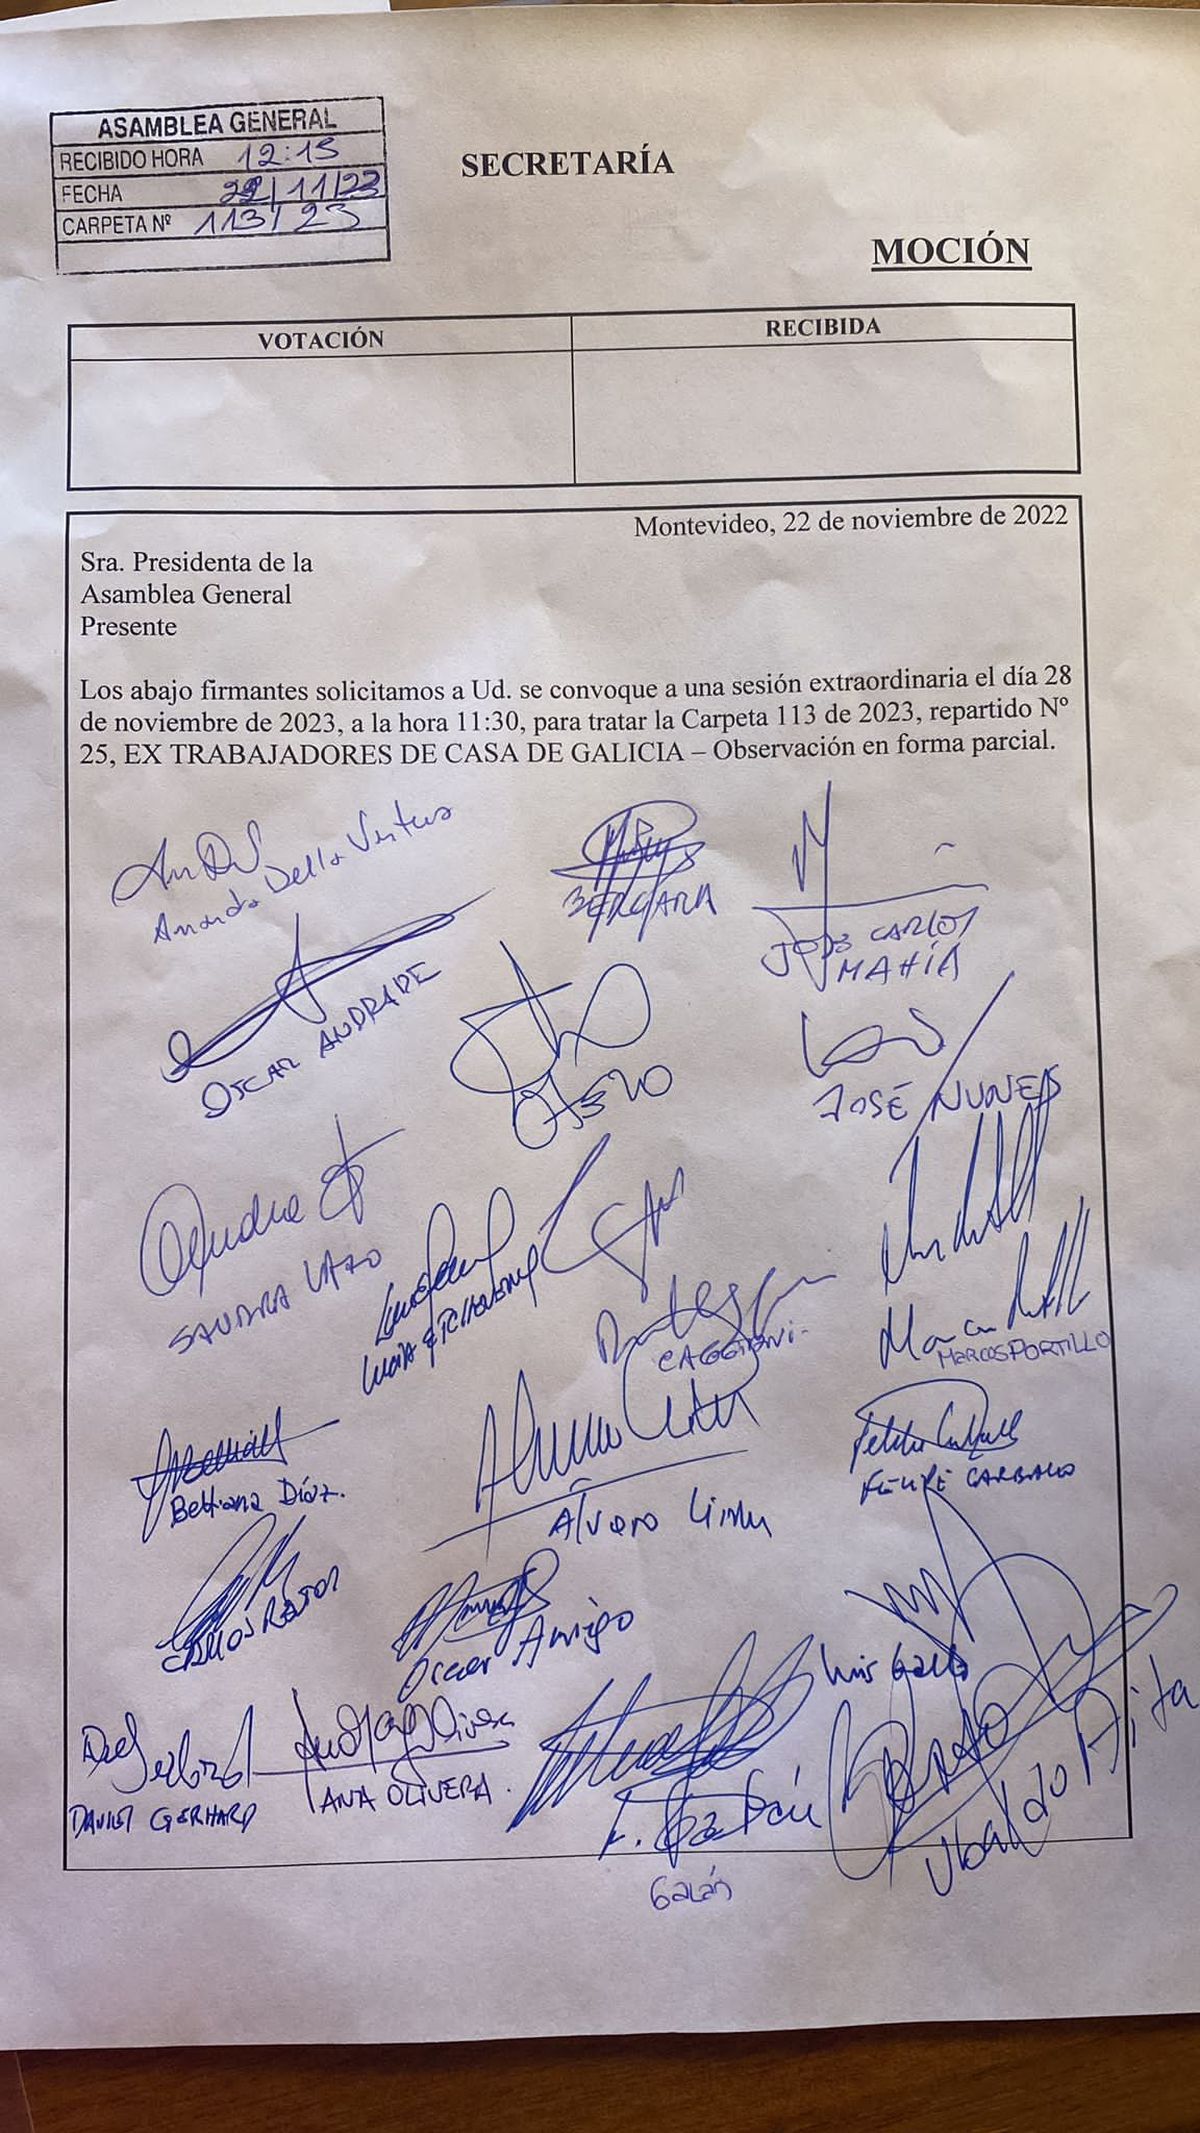 ASAMBLEA GENERAL
RECIBIDO HORA 12:15
FECHA 22/11/23
CARPETA Nº 113/23
SECRETARÍA
MOCIÓN
VOTACIÓN RECIBIDA
Montevideo, 22 de noviembre de 2022
Sra. Presidenta de la
Asamblea General
Presente
Los abajo firmantes solicitamos a Ud. se convoque a una sesión extraordinaria el día 28
de noviembre de 2023, a la hora 11:30, para tratar la Carpeta 113 de 2023, repartido Nº
25, EX TRABAJADORES DE CASA DE GALICIA – Observación en forma parcial.
Amanda Della Ventura
BERGARA
JOSÉ CARLOS
MAHÍA
OSCAR ANDRADE
OTERO
JOSÉ NUNES
SANDRA LAZO
LUCÍA ETCHEVERRY
CAGGIANI
MARCOS PORTILLO
Bettiana Díaz.
Alvaro Lima
FELIPE CARBALLO
Oscar Amigo
Luis Gallo
DANIEL GERHARD
ANA OLIVERA.
Galán
Ubaldo Aita